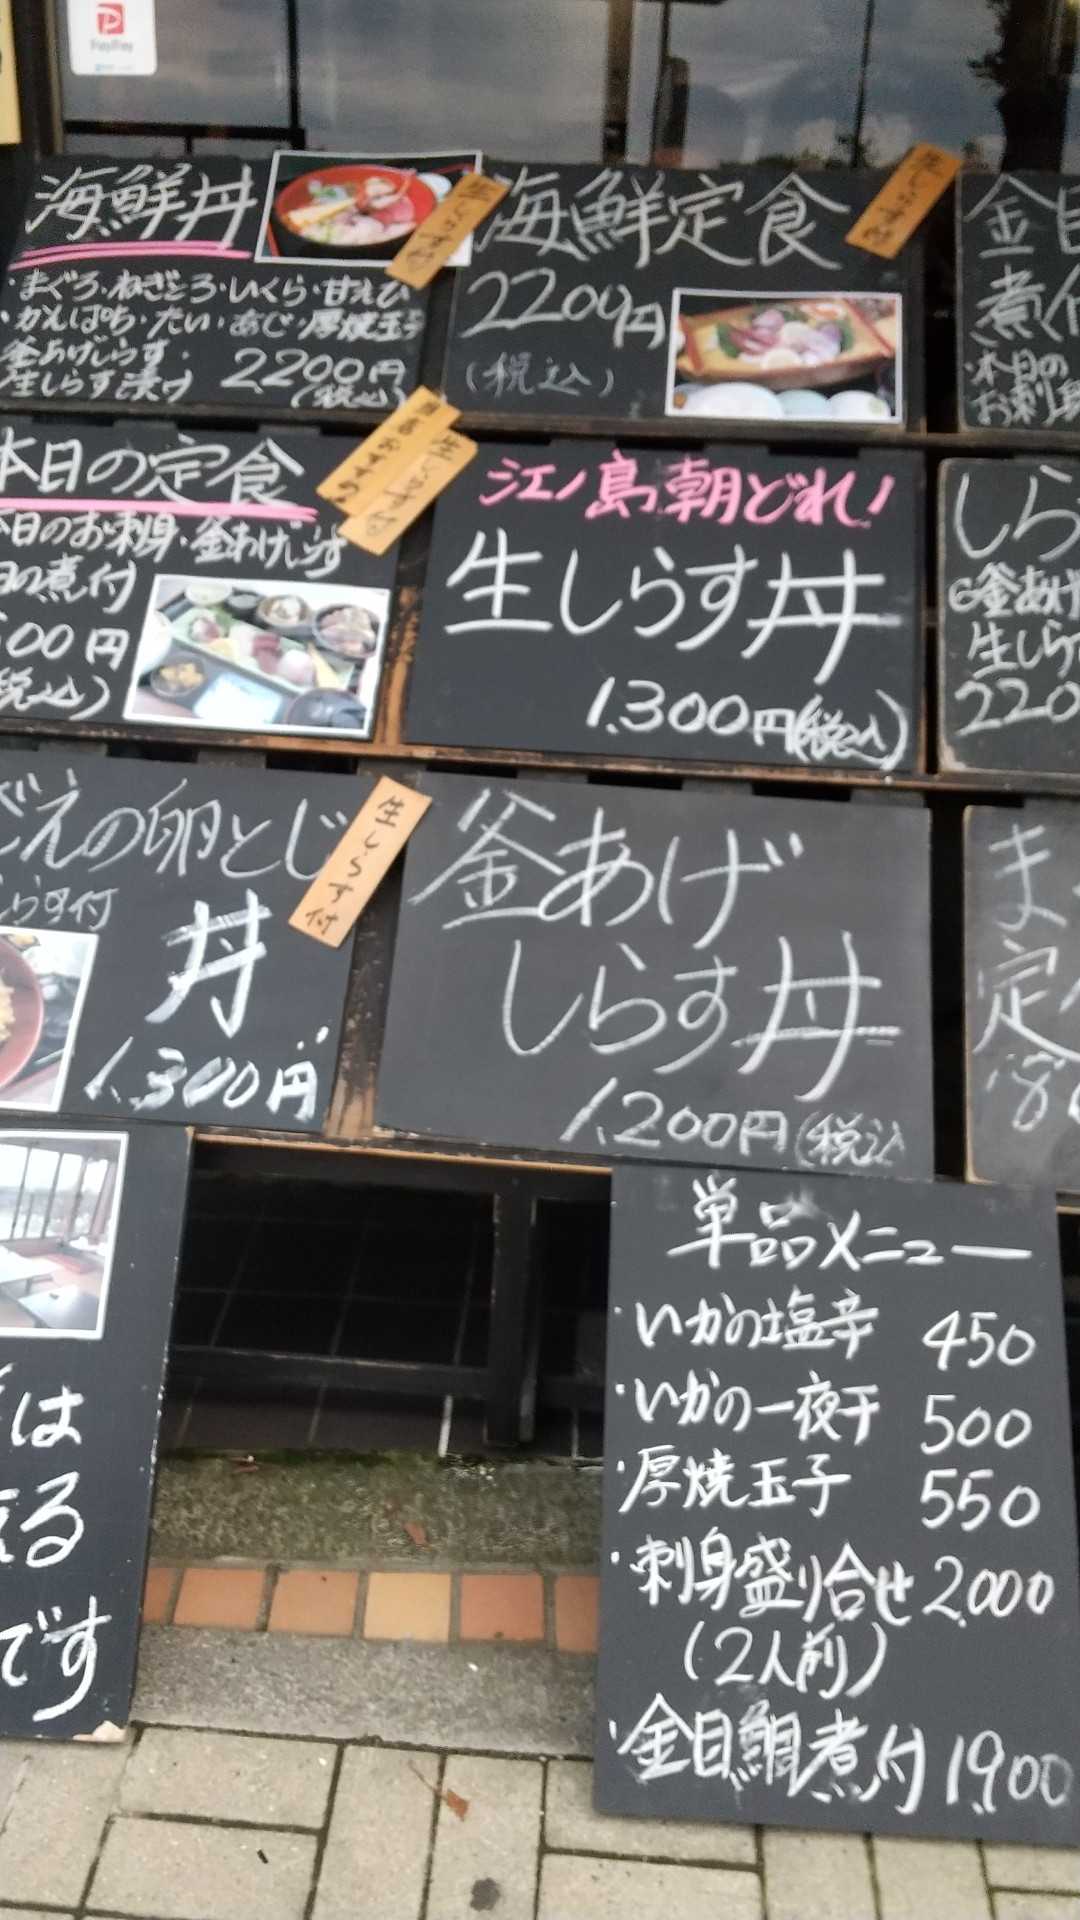 PayPay
海鮮丼
生しらす付
・まぐろ・ねぎとろ・いくら・甘えび
・かんぱち・たい・あじ・厚焼玉子
釜あげしらす・
生しらす漬け 2,200円
(税込)
海鮮定食
生しらす付
2200円
(税込)
金目
煮付
・本日の
お刺身
本日の定食
生しらす付
本日のお刺身・釜あげしらす
日の煮付
500円
税込)
江ノ島朝どれ!
生しらす丼
1,300円(税込)
しら
釜あげ
生しらす
220
えの卵とじ
生しらす付
丼
1,300円
釜あげ
しらす丼
1,200円(税込
ま
定
は
る
です
単品メニュー
・いかの塩辛 450
・いかの一夜干 500
・厚焼玉子 550
・刺身盛り合せ 2,000
(2人前)
・金目鯛煮付 1,900